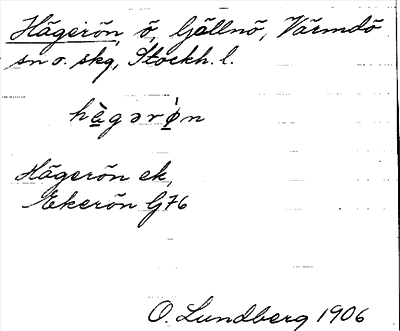 Hägerön, ö, Gällnö, Värmdö
sn o. skg, Stockh. l.
hägərø̀n
Hägerön ek,
Ekerön G76
O. Lundberg 1906